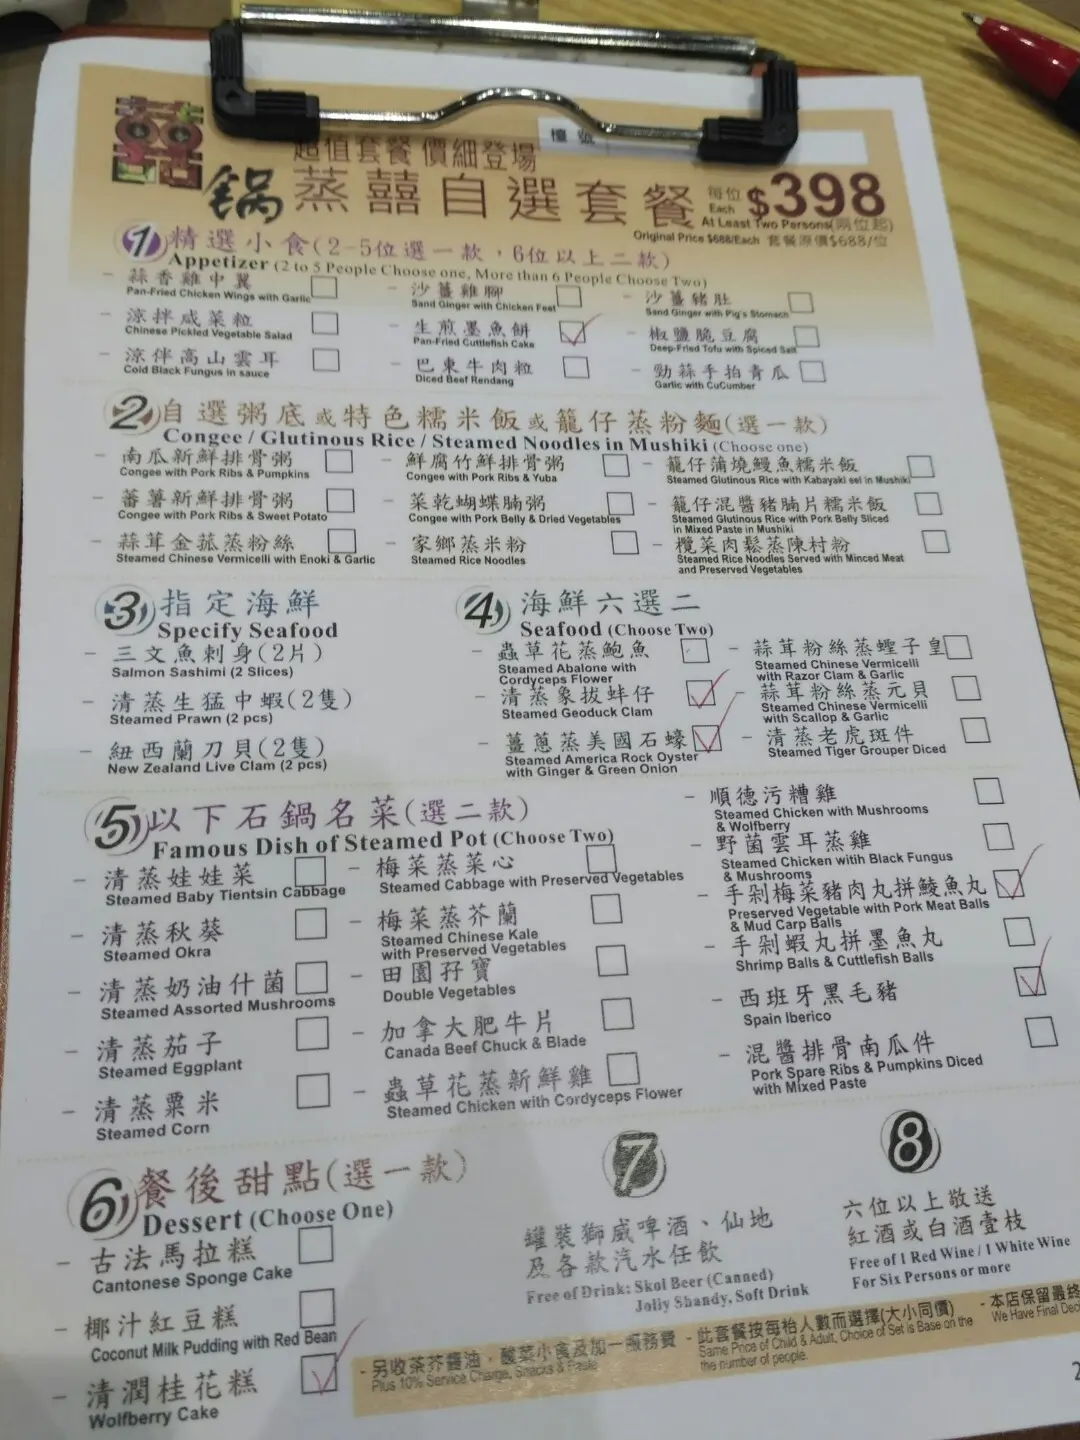 囍
檯 號
超值套餐 價細登場
鍋 蒸囍自選套餐
每位 $398
Each
At Least Two Persons(兩位起)
Original Price $688/Each 套餐原價$688/位
1 精選小食(2-5位選一款，6位以上二款)
Appetizer (2 to 5 People Choose one, More than 6 People Choose Two)
- 蒜香雞中翼
Pan-Fried Chicken Wings with Garlic
- 沙薑雞腳
Sand Ginger with Chicken Feet
- 沙薑豬肚
Sand Ginger with Pig's Stomach
- 涼拌咸菜粒
Chinese Pickled Vegetable Salad
- 生煎墨魚餅
Pan-Fried Cuttlefish Cake
- 椒鹽脆豆腐
Deep-Fried Tofu with Spiced Salt
- 涼伴高山雲耳
Cold Black Fungus in sauce
- 巴東牛肉粒
Diced Beef Rendang
- 勁蒜手拍青瓜
Garlic with CuCumber
2 自選粥底或特色糯米飯或籠仔蒸粉麵(選一款)
Congee / Glutinous Rice / Steamed Noodles in Mushiki (Choose one)
- 南瓜新鮮排骨粥
Congee with Pork Ribs & Pumpkins
- 鮮腐竹鮮排骨粥
Congee with Pork Ribs & Yuba
- 籠仔蒲燒鰻魚糯米飯
Steamed Glutinous Rice with Kabayaki eel in Mushiki
- 蕃薯新鮮排骨粥
Congee with Pork Ribs & Sweet Potato
- 菜乾蝴蝶腩粥
Congee with Pork Belly & Dried Vegetables
- 籠仔混醬豬腩片糯米飯
Steamed Glutinous Rice with Pork Belly Sliced
in Mixed Paste in Mushiki
- 蒜茸金菰蒸粉絲
Steamed Chinese Vermicelli with Enoki & Garlic
- 家鄉蒸米粉
Steamed Rice Noodles
- 欖菜肉鬆蒸陳村粉
Steamed Rice Noodles Served with Minced Meat
and Preserved Vegetables
3 指定海鮮
Specify Seafood
- 三文魚刺身(2片)
Salmon Sashimi (2 Slices)
- 清蒸生猛中蝦(2隻)
Steamed Prawn (2 pcs)
- 紐西蘭刀貝(2隻)
New Zealand Live Clam (2 pcs)
4 海鮮六選二
Seafood (Choose Two)
- 蟲草花蒸鮑魚
Steamed Abalone with
Cordyceps Flower
- 蒜茸粉絲蒸蟶子皇
Steamed Chinese Vermicelli
with Razor Clam & Garlic
- 清蒸象拔蚌仔
Steamed Geoduck Clam
- 蒜茸粉絲蒸元貝
Steamed Chinese Vermicelli
with Scallop & Garlic
- 薑蔥蒸美國石蠔
Steamed America Rock Oyster
with Ginger & Green Onion
- 清蒸老虎斑件
Steamed Tiger Grouper Diced
5 以下石鍋名菜(選二款)
Famous Dish of Steamed Pot (Choose Two)
- 清蒸娃娃菜
Steamed Baby Tientsin Cabbage
- 清蒸秋葵
Steamed Okra
- 清蒸奶油什菌
Steamed Assorted Mushrooms
- 清蒸茄子
Steamed Eggplant
- 清蒸粟米
Steamed Corn
- 梅菜蒸菜心
Steamed Cabbage with Preserved Vegetables
- 梅菜蒸芥蘭
Steamed Chinese Kale
with Preserved Vegetables
- 田園孖寶
Double Vegetables
- 加拿大肥牛片
Canada Beef Chuck & Blade
- 蟲草花蒸新鮮雞
Steamed Chicken with Cordyceps Flower
- 順德污糟雞
Steamed Chicken with Mushrooms
& Wolfberry
- 野菌雲耳蒸雞
Steamed Chicken with Black Fungus
& Mushrooms
- 手剁梅菜豬肉丸拼鯪魚丸
Preserved Vegetable with Pork Meat Balls
& Mud Carp Balls
- 手剁蝦丸拼墨魚丸
Shrimp Balls & Cuttlefish Balls
- 西班牙黑毛豬
Spain Iberico
- 混醬排骨南瓜件
Pork Spare Ribs & Pumpkins Diced
with Mixed Paste
6 餐後甜點(選一款)
Dessert (Choose One)
- 古法馬拉糕
Cantonese Sponge Cake
- 椰汁紅豆糕
Coconut Milk Pudding with Red Bean
- 清潤桂花糕
Wolfberry Cake
7
罐裝獅威啤酒、仙地
及各款汽水任飲
Free of Drink: Skol Beer (Canned)
Jolly Shandy, Soft Drink
8
六位以上敬送
紅酒或白酒壹枝
Free of 1 Red Wine / 1 White Wine
For Six Persons or more
- 另收茶芥醬油，酸菜小食及加一服務費
Plus 10% Service Charge, Snacks & Paste
- 此套餐按每枱人數而選擇(大小同價)
Same Price of Child & Adult, Choice of Set is Base on the
the number of people.
- 本店保留最終
We Have Final Dec
2